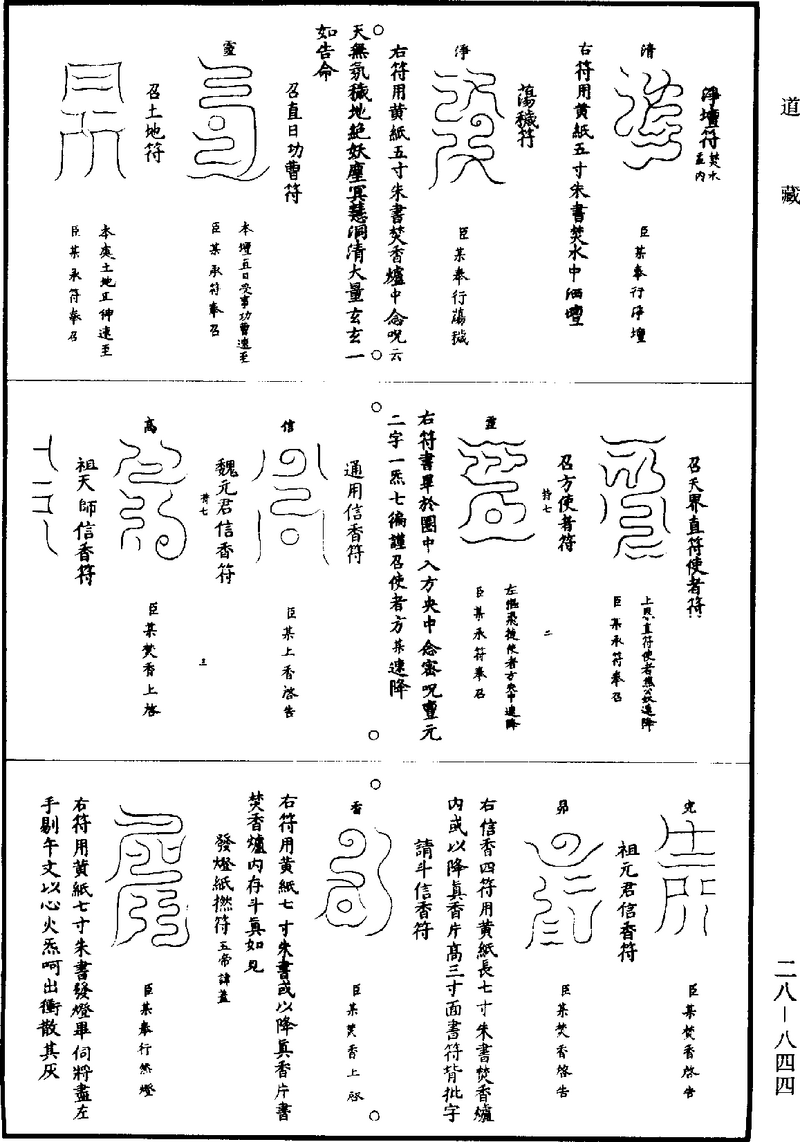 道藏
淨壇符焚水盂內
清
臣某奉行淨壇
右符用黃紙五寸朱書焚水中洒壇
蕩穢符
淨
臣某奉行蕩穢
右符用黃紙五寸朱書焚香爐中念呪云
天無氛穢地絕妖塵冥慧洞清大量玄玄一
如告命
召直日功曹符
靈
本壇直日受事功曹速至
臣某承符奉召
召土地符
本處土地正神速至
臣某承符奉召
召天界直符使者符
臣某承符奉召
召方使者符
符七
二
靈
臣某承符奉召
右符書畢於圈中入方央中念密呪靈元
二字一炁七徧謹召使者方某速降
通用信香符
信
臣某上香啓告
魏元君信香符
符七
三
高
臣某焚香上啓
祖天師信香符
臣某焚香啓告
祖元君信香符
昴
臣某焚香啓告
右信香四符用黃紙長七寸朱書焚香爐
內或以降真香片高三寸面書符背批字
請斗信香符
香
臣某焚香上啓
右符用黃紙七寸朱書或以降真香片書
焚香爐內存斗真如見
發燈紙撚符五帝諱蓋
臣某奉行然燈
右符用黃紙七寸朱書發燈畢伺將盡左
手剔午文以心火炁呵出衝散其灰
二八－八四四